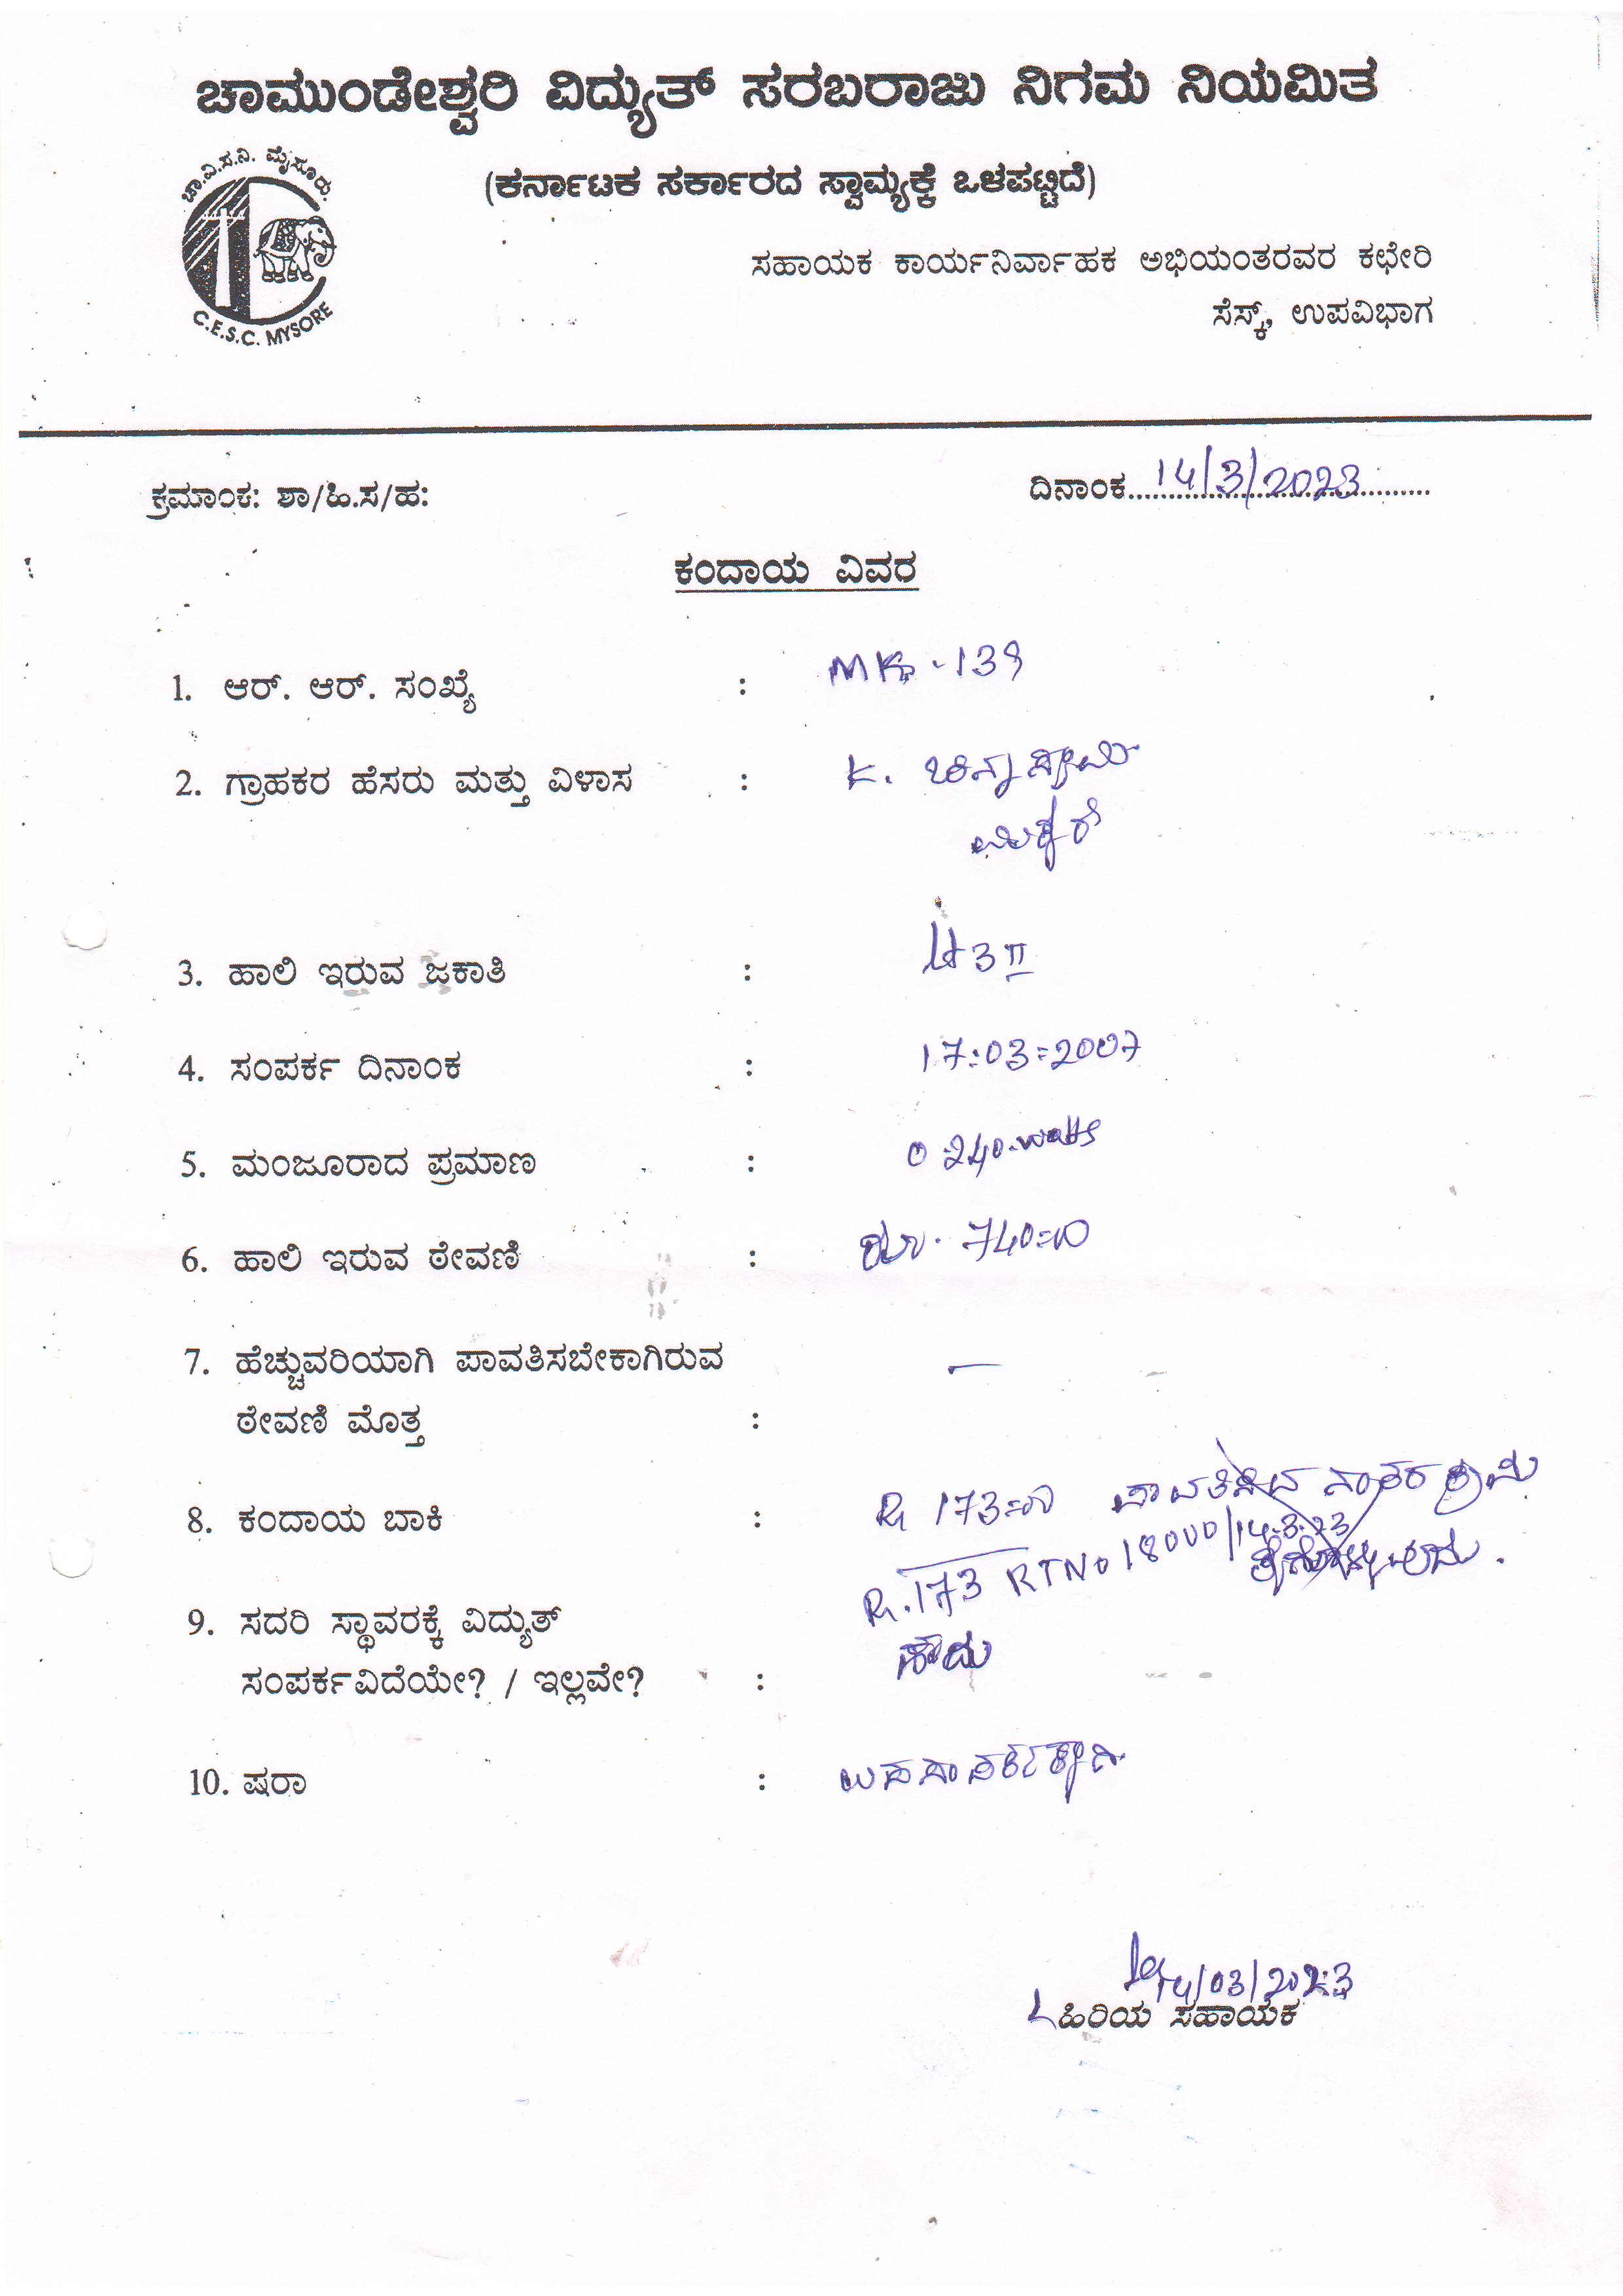 ಚಾಮುಂಡೇಶ್ವರಿ ವಿದ್ಯುತ್ ಸರಬರಾಜು ನಿಗಮ ನಿಯಮಿತ
ಚಾ.ವಿ.ಸ.ನಿ. ಮೈಸೂರು.
C.E.S.C. MYSORE
(ಕರ್ನಾಟಕ ಸರ್ಕಾರದ ಸ್ವಾಮ್ಯಕ್ಕೆ ಒಳಪಟ್ಟಿದೆ)
ಸಹಾಯಕ ಕಾರ್ಯನಿರ್ವಾಹಕ ಅಭಿಯಂತರವರ ಕಛೇರಿ
ಸೆಸ್ಕ್, ಉಪವಿಭಾಗ
ಕ್ರಮಾಂಕ: ಶಾ/ಹಿ.ಸ/ಹ: ದಿನಾಂಕ 14/3/2023
ಕಂದಾಯ ವಿವರ
1. ಆರ್. ಆರ್. ಸಂಖ್ಯೆ : -139
2. ಗ್ರಾಹಕರ ಹೆಸರು ಮತ್ತು ವಿಳಾಸ : K. ಚಿನ್ನಸ್ವಾಮಿ
3. ಹಾಲಿ ಇರುವ ಜಕಾತಿ : Lt 3 II
4. ಸಂಪರ್ಕ ದಿನಾಂಕ : 17:03=2007
5. ಮಂಜೂರಾದ ಪ್ರಮಾಣ : 0.240.watts
6. ಹಾಲಿ ಇರುವ ಠೇವಣಿ : ರೂ. 740=00
7. ಹೆಚ್ಚುವರಿಯಾಗಿ ಪಾವತಿಸಬೇಕಾಗಿರುವ —
ಠೇವಣಿ ಮೊತ್ತ :
8. ಕಂದಾಯ ಬಾಕಿ : Rs 173=00 ಪಾವತಿಸಿದ ನಂತರ ಕ್ರಮ
ಕೈಗೊಳ್ಳಬಹುದು.
Rs.173 RTNo 18000/14.3.23
9. ಸದರಿ ಸ್ಥಾವರಕ್ಕೆ ವಿದ್ಯುತ್ ಹೌದು
ಸಂಪರ್ಕವಿದೆಯೇ? / ಇಲ್ಲವೇ? :
10. ಷರಾ :
14/03/2023
ಹಿರಿಯ ಸಹಾಯಕ